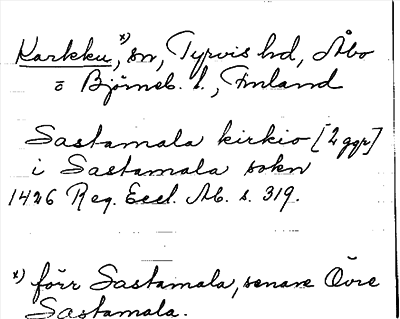 Karkku,x) sn, Tyrvis hd, Åbo
o Björneb. l., Finland
Sastamala kirkio [2 ggr]
i Sastamala sokn
1426 Reg. Eccl. Ab. s. 319.
x) förr Sastamala, senare Övre
Sastamala.